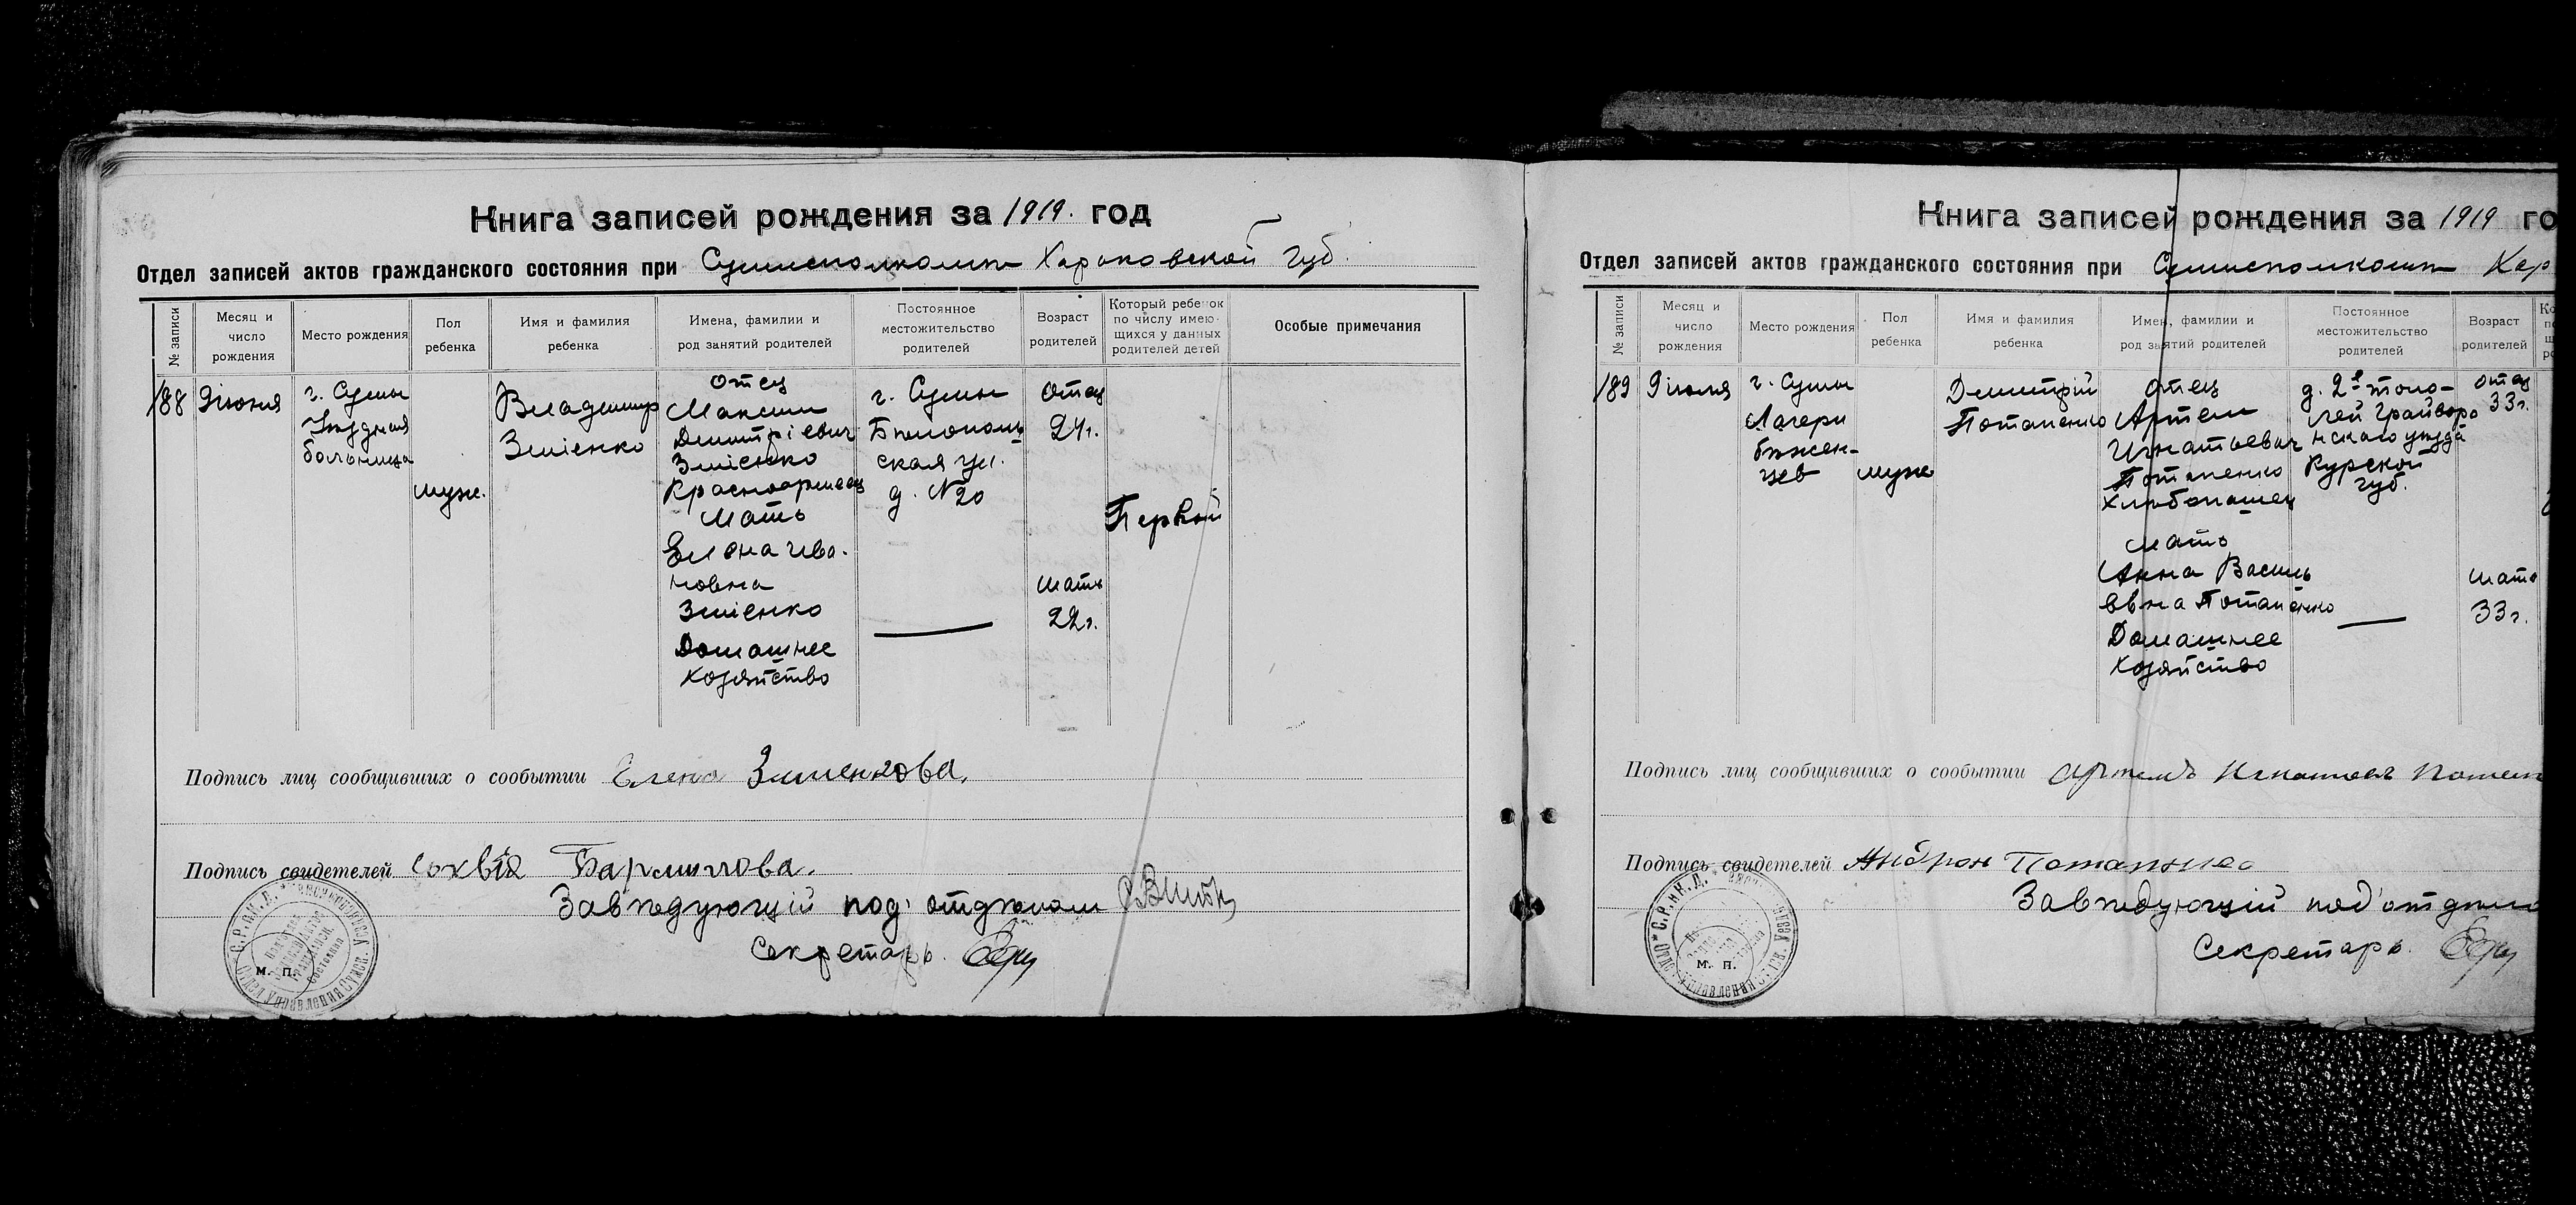 Книга записей рождения за 1919. год
Отдел записей актов гражданского состояния при Сумисполкоме Харьковской губ.
№ записи
Месяц и число рождения
Место рождения
Пол ребенка
Имя и фамилия ребенка
Имена, фамилии и род занятий родителей
Постоянное местожительство родителей
Возраст родителей
Который ребенок по числу имеющихся у данных родителей детей
Особые примечания
188
9 июня
г. Сумы
Уѣздная
больница
муж.
Владимир
Зміенко
отец
Максим
Димитріевич
Зміенко
Красноармеец
Мать
Елена Ива-
новна
Зміенко
Домашнее
хозяйство
г. Сумы
Бѣлополь
ская ул.
д. №20
отец
24г.
мать
22г.
Первый
Подпись лиц сообщивших о сообытии Елена Змиенкова.
Подпись свидетелей
Завѣдующій под'отдѣлом
Секретарь
м. п.
Книга записей рождения за 1919 го
Отдел записей актов гражданского состояния при Сумисполкоме Хар
№ записи
Месяц и число рождения
Место рождения
Пол ребенка
Имя и фамилия ребенка
Имен, фамилии и род занятий родителей
Постоянное местожительство родителей
Возраст родителей
189
9 июля
г. Сумы
Лагери
бѣжен-
цев
муж
Димитрій
Потапенко
отец
Артем
Игнатьевич
Потапенко
Хлѣбопашец
мать
Анна Василь
евна Потапенко
Домашнее
хозяйство
Грайворо
нскаго уѣзда
Курской
губ.
отец
33г.
мать
33г.
Подпись лиц сообщивших о сообытии Артемъ
Подпись свидетелей Андрон Потапенко
Завѣдующій под'отдѣло
Секретарь.
м. п.